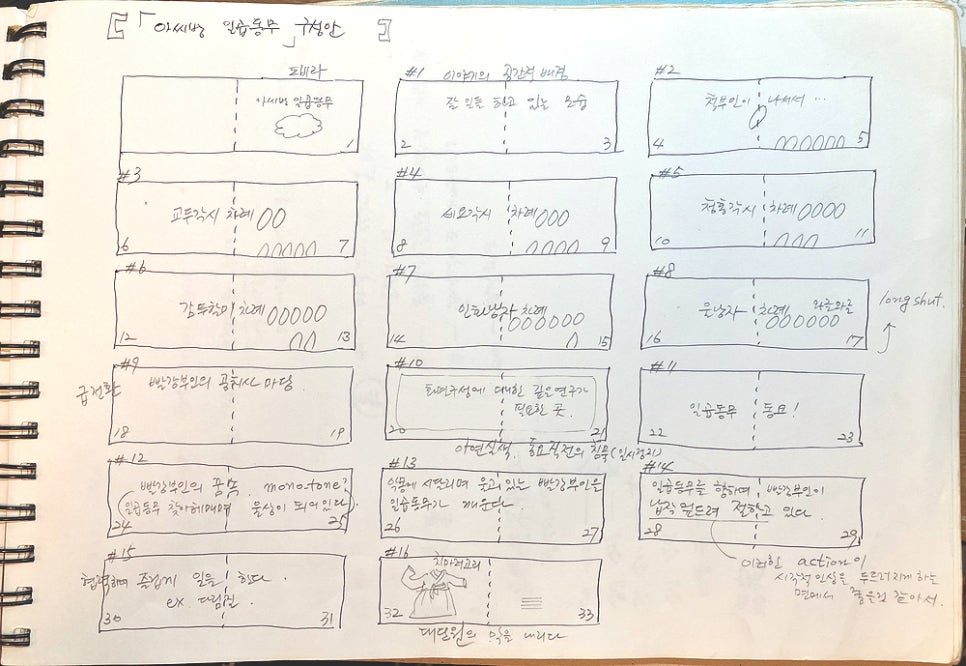 「아씨방 일곱동무」 구성안
표지
아씨방 일곱동무
1
#1 이야기의 공간적 배경
잘 일을 하고 있는 모습
2 3
#2
척부인이 나서서 …
4 5
#3
교두각시 차례
6 7
#4
세요각시 차례
8 9
#5
청홍각시 차례
10 11
#6
감투할미 차례
12 13
#7
인화낭자 차례
14 15
#8
울낭자 차례 와글와글
16 17
long shut.
#9
급전환
빨강부인의 공치사 마당.
18 19
#10
화면구성에 대한 깊은연구가
필요한 곳.
20 21
아연실색. 동요직전의 침묵(일시정지)
#11
일곱동무 동요!
22 23
#12
빨강부인의 꿈속. monotone?
일곱동무 찾아헤매며 울상이 되어있다.
24 25
#13
악몽에 시달리며 울고 있는 빨강부인을
일곱동무가 깨운다.
26 27
#14
일곱동무를 향하여 빨강부인이
납작 엎드려 절하고 있다.
28 29
이러한 action이
시각적 인상을 두드러지게 하는
면에서 좋은것 같아서.
#15
협력하여 즐겁게 일을 한다.
ex. 다림질.
30 31
#16
치마저고리
32 33
대단원의 막을 내리다